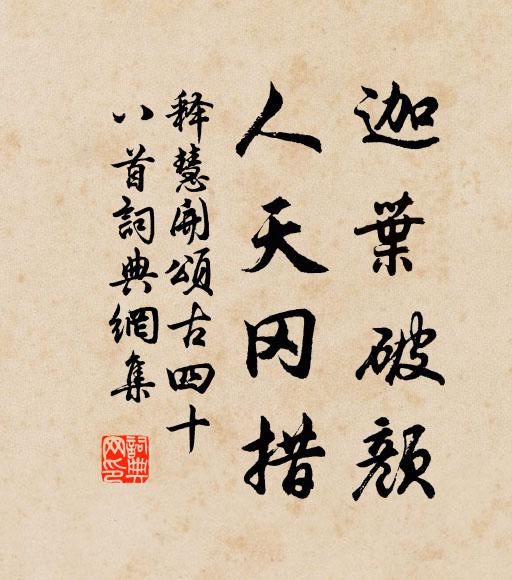 迦葉破顏
人天罔措
释慧開頌古四十
八首詞典網集
詞典网印